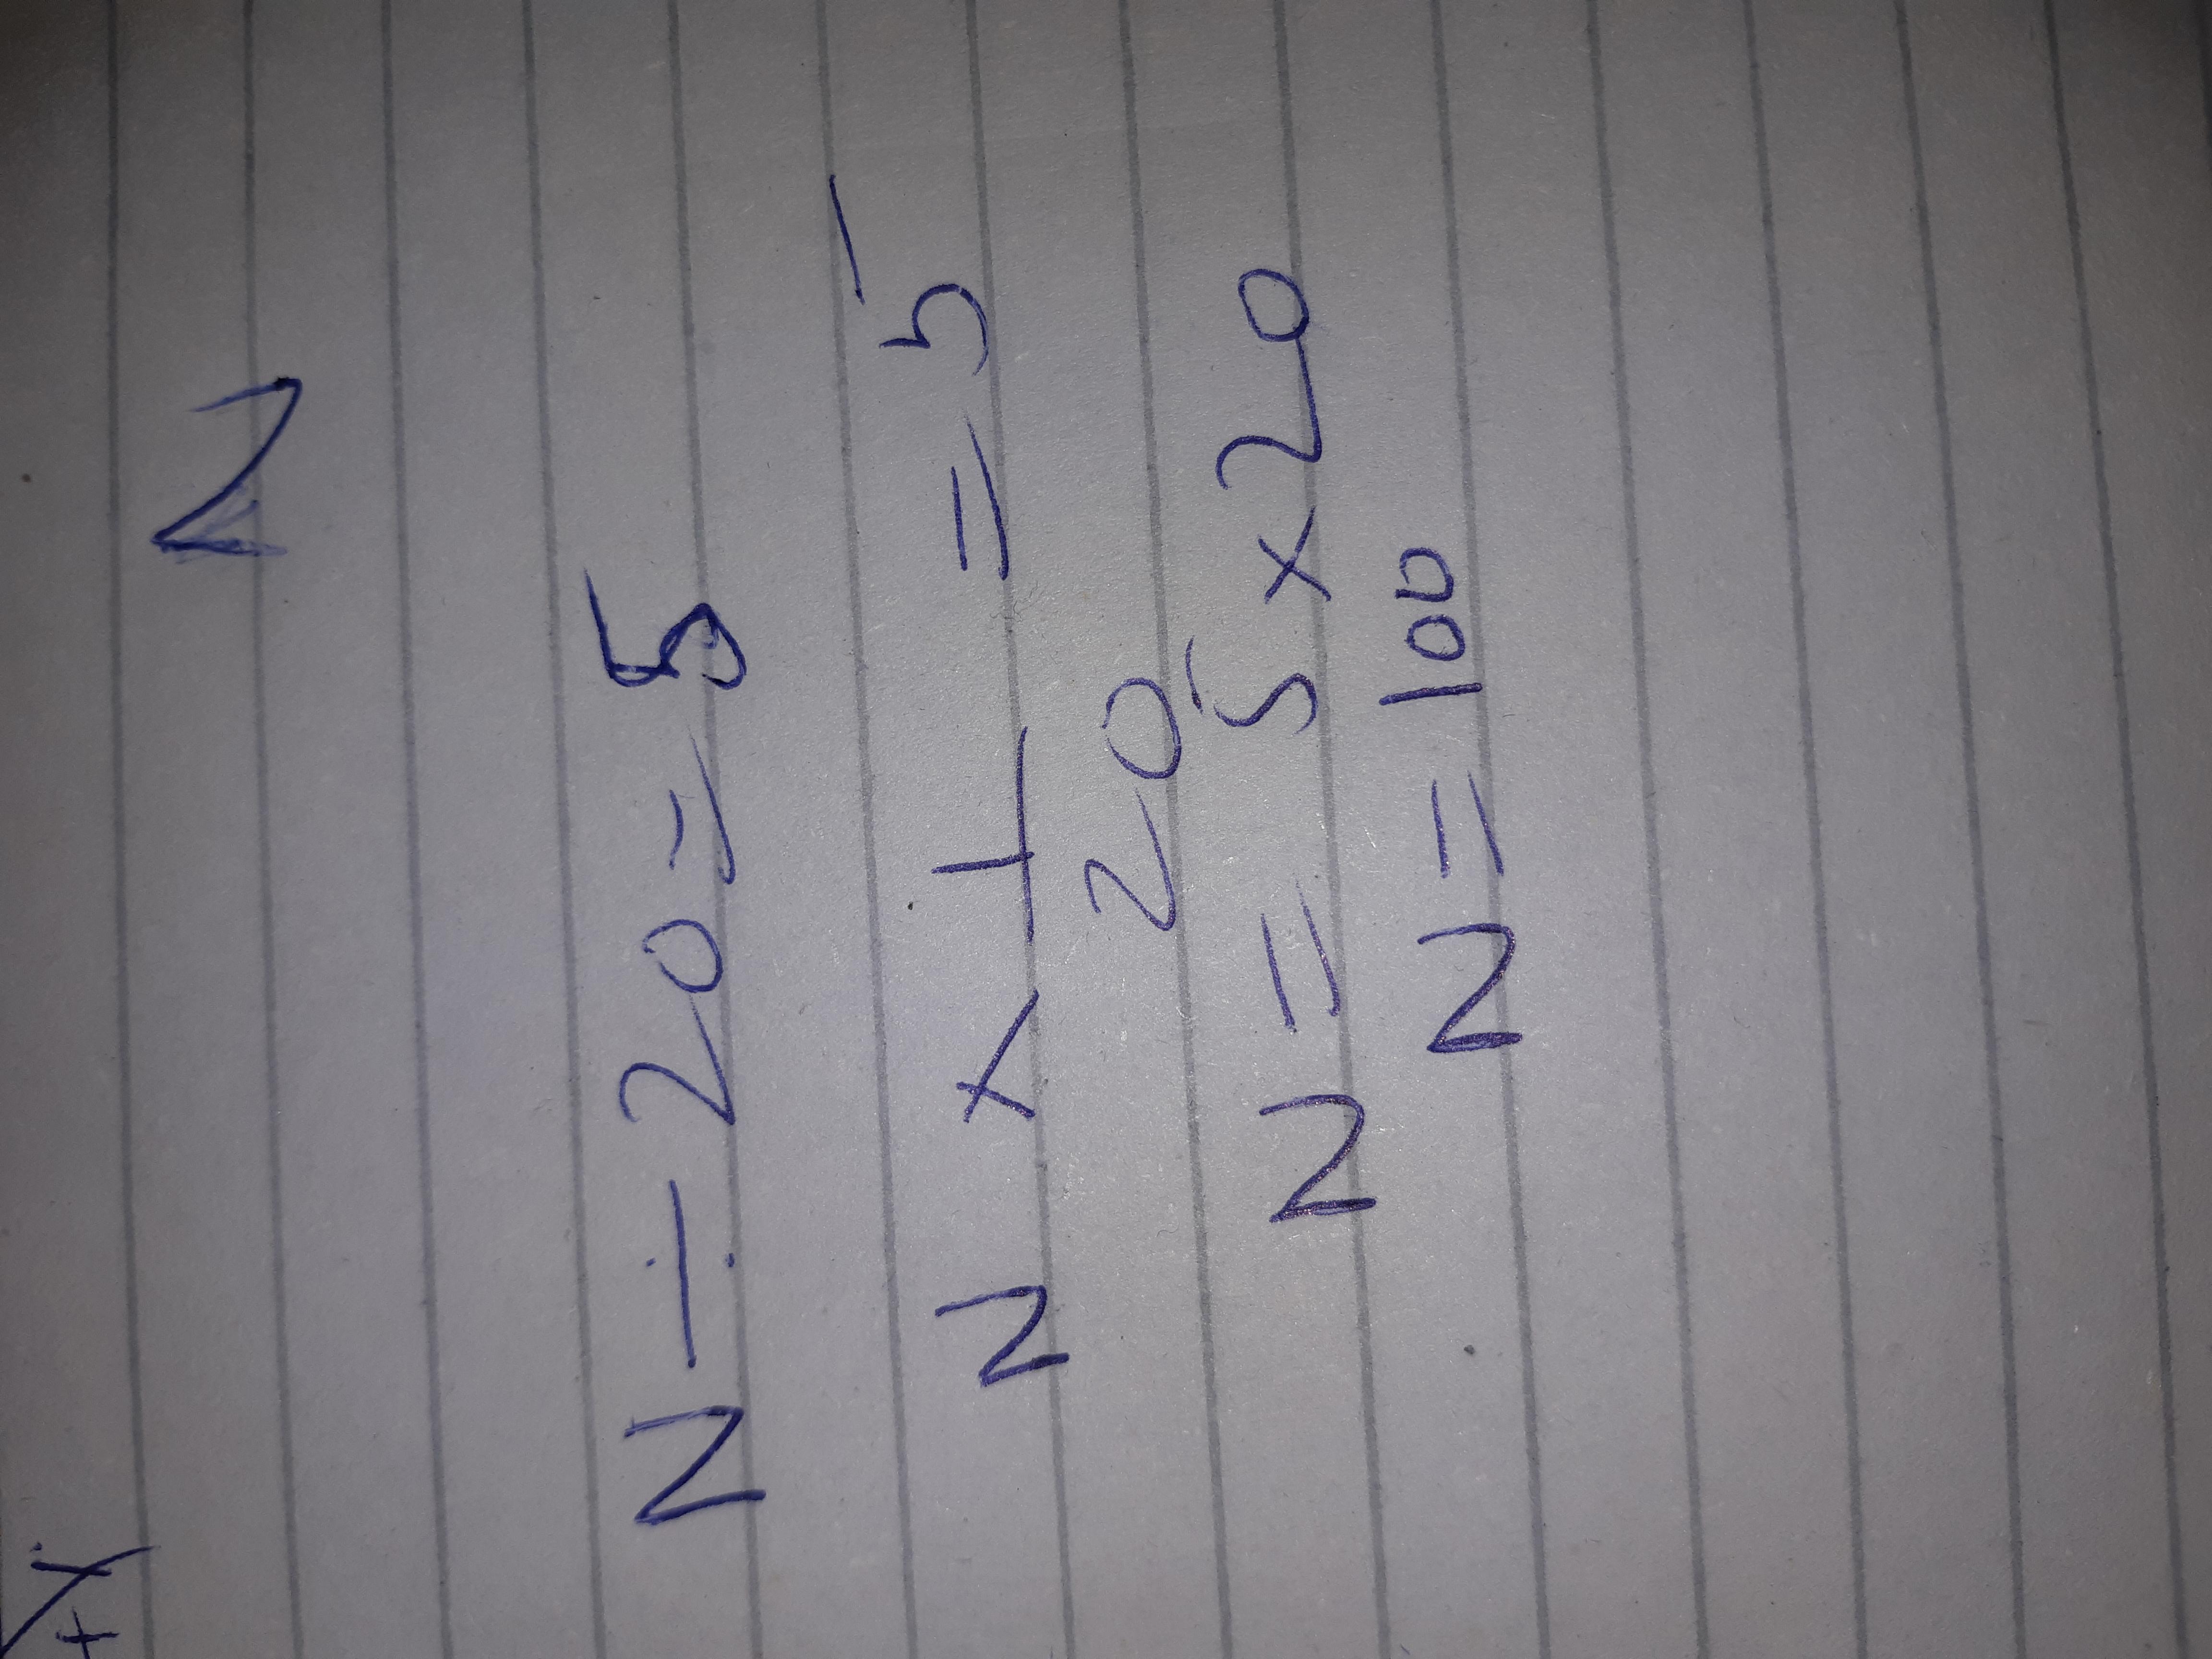 N
N ÷ 20 = 5
N × 1/20 = 5
N = 5 × 20
N = 100